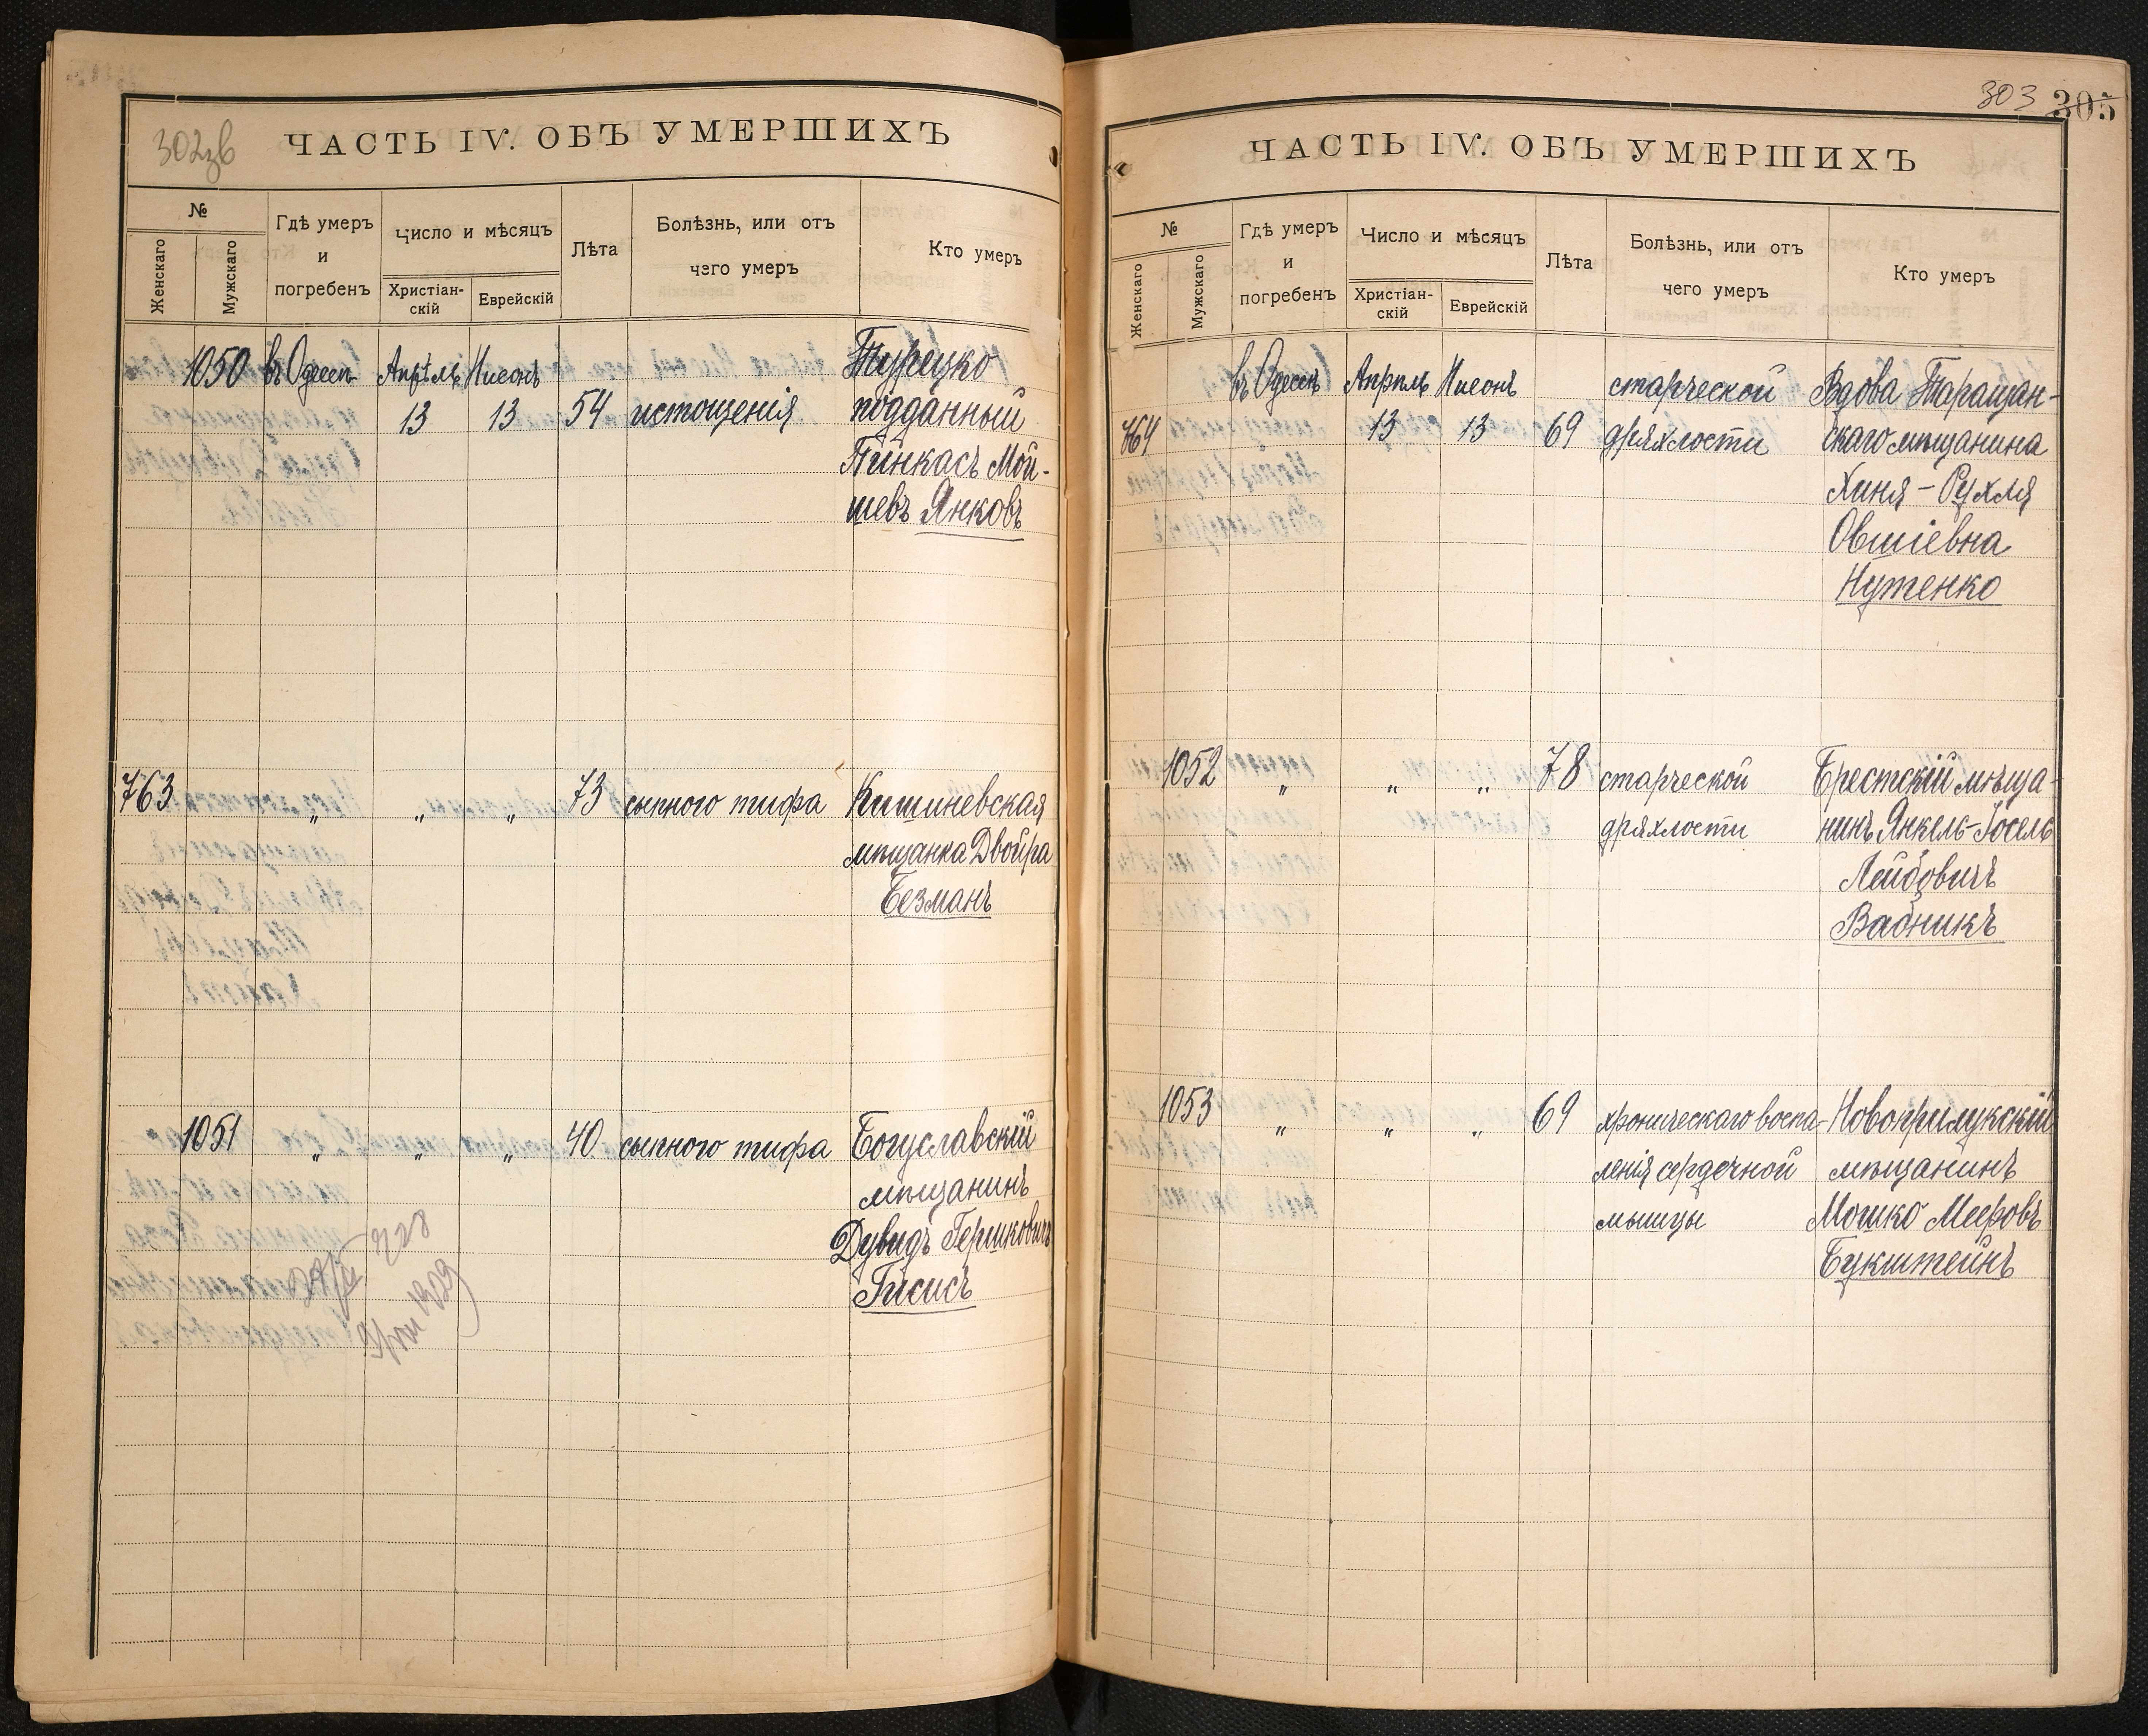 302зв
ЧАСТЬ IV. ОБЪ УМЕРШИХЪ
№
Женскаго
Мужскаго
Гдѣ умеръ
и
погребенъ
Число и мѣсяцъ
Христіан-
скій
Еврейскій
Лѣта
Болѣзнь, или отъ
чего умеръ
Кто умеръ
1050 въ Одессѣ Апрѣль Нисонъ Турецко
13 13 54 истощенія подданный
Пинкасъ Мой-
шевъ Янковъ
763 „ „ „ 73 сыпного тифа Кишиневская
мѣщанка Двойра
Безманъ
1051 „ „ „ 40 сыпного тифа Богуславскій
мѣщанинъ
Дувидъ Гершковичъ
Гисисъ
303 305
ЧАСТЬ IV. ОБЪ УМЕРШИХЪ
№
Женскаго
Мужскаго
Гдѣ умеръ
и
погребенъ
Число и мѣсяцъ
Христіан-
скій
Еврейскій
Лѣта
Болѣзнь, или отъ
чего умеръ
Кто умеръ
въ Одессѣ Апрѣль Нисонъ старческой Вдова Таращан-
764 13 13 69 дряхлости скаго мѣщанина
Хиня-Рухля
Овшіевна
Нутенко
1052 „ „ „ 78 старческой Брестскій мѣща-
дряхлости нинъ Янкель-Іосель
Лейбовичъ
Вабникъ
1053 „ „ „ 69 хроническаго воспа- Новоприлукскій
ленія сердечной мѣщанинъ
мышцы Мошко Мееровъ
Букштейнъ